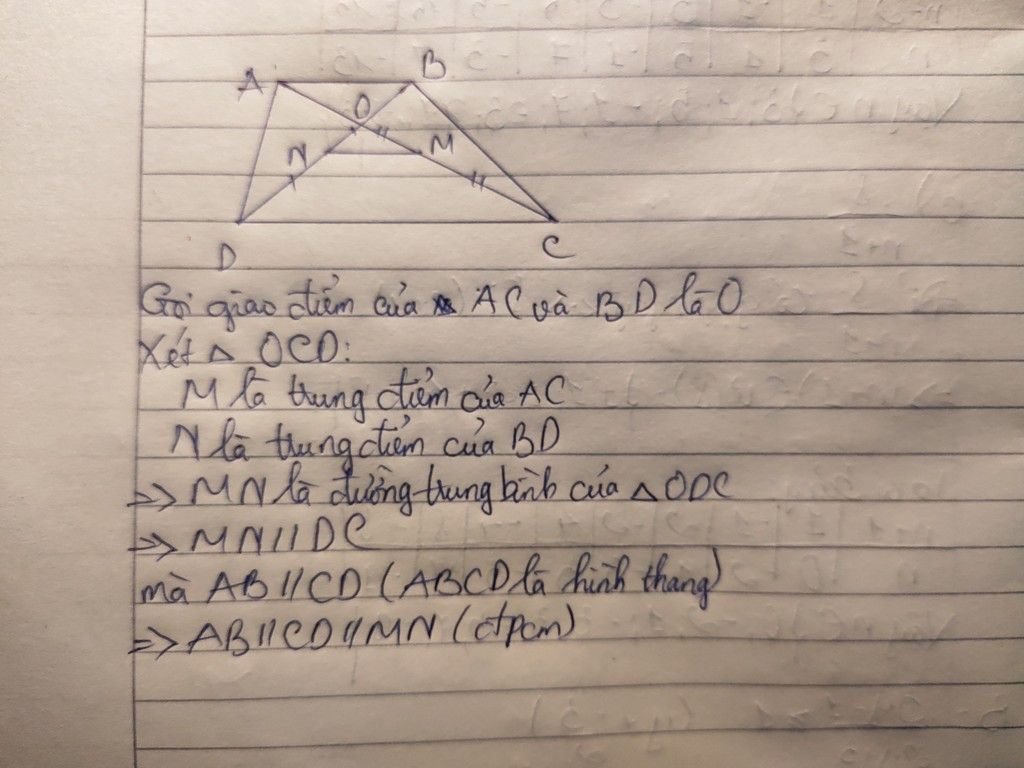 A B
O
N M
D C
Gọi giao điểm của AC và BD là O
Xét △ OCD:
M là trung điểm của AC
N là trung điểm của BD
=> MN là đường trung bình của △ ODC
=> MN // DC
mà AB // CD (ABCD là hình thang)
=> AB // CD // MN (đpcm)